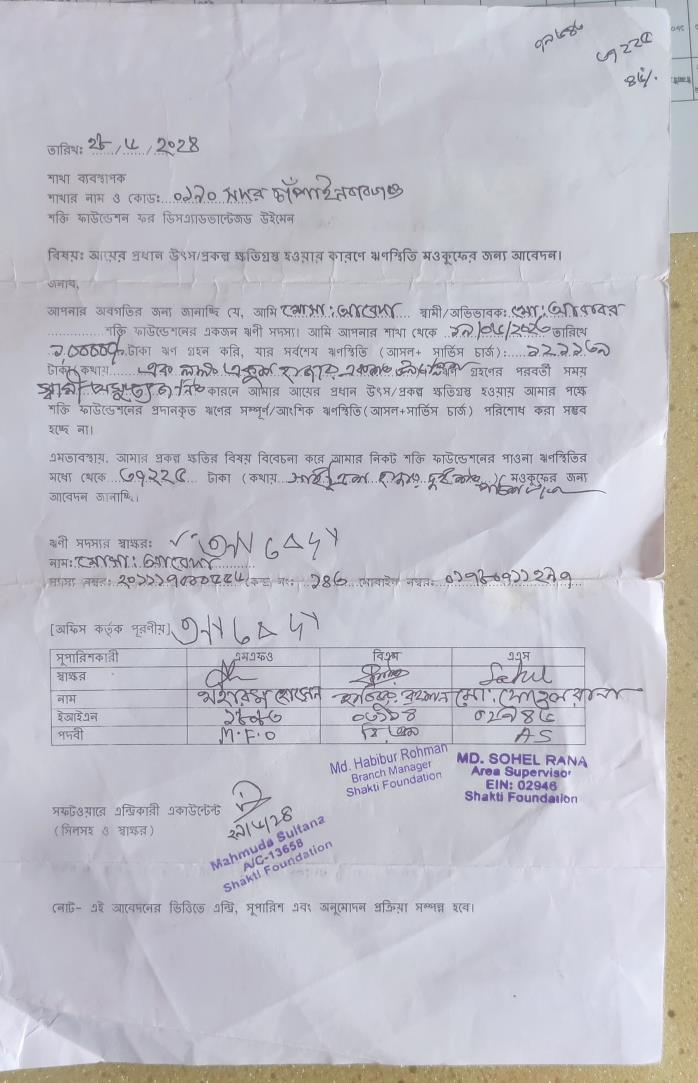 ৩৭২২৫
তারিখ: ২৮/৫/২০২৪
শাখা ব্যবস্থাপক
শাখার নাম ও কোড: ০১৯০ সদর চাঁপাইনবাবগঞ্জ
শক্তি ফাউন্ডেশন ফর ডিসএ্যাডভান্টেজড উইমেন
বিষয়: আয়ের প্রধান উৎস/প্রকল্প ক্ষতিগ্রস্থ হওয়ার কারনে ঋণস্থিতি মওকুফের জন্য আবেদন।
জনাব,
আপনার অবগতির জন্য জানাচ্ছি যে, আমি মোসা: আবেদা স্বামী/অভিভাবক: মো:
শক্তি ফাউন্ডেশনের একজন ঋণী সদস্য। আমি আপনার শাখা থেকে তারিখে
১০০০০০/- টাকা ঋণ গ্রহন করি, যার সর্বশেষ ঋণস্থিতি (আসল+ সার্ভিস চার্জ):
টাকা (কথায় এক লক্ষ একুশ হাজার ঋণ গ্রহণের পরবর্তী সময়
স্বামী অসুস্থতা জনিত কারনে আমার আয়ের প্রধান উৎস/প্রকল্প ক্ষতিগ্রস্থ হওয়ায় আমার পক্ষে
শক্তি ফাউন্ডেশনের প্রদানকৃত ঋণের সম্পূর্ণ/আংশিক ঋণস্থিতি (আসল+সার্ভিস চার্জ) পরিশোধ করা সম্ভব
হচ্ছে না।
এমতাবস্থায়, আমার প্রকল্প ক্ষতির বিষয় বিবেচনা করে আমার নিকট শক্তি ফাউন্ডেশনের পাওনা ঋণস্থিতির
মধ্যে থেকে ৩৭২২৫ টাকা (কথায় হাজার দুই শত পঁচিশ) মওকুফের জন্য
আবেদন জানাচ্ছি।
ঋণী সদস্যর স্বাক্ষর:
নাম: মোসা: আবেদা
সদস্য নম্বর: কেন্দ্র নং: ১৪৬ মোবাইল নম্বর:
[অফিস কর্তৃক পূরণীয়]
সুপারিশকারী এমএফও বিএম এএস
স্বাক্ষর Sohel
নাম হোসেন হাবিবুর রহমান মো: সোহেল রানা
ইআইএন ০২৯৪৬
পদবী M.F.O বি এম AS
Md. Habibur Rohman
Branch Manager
Shakti Foundation
MD. SOHEL RANA
Area Supervisor
EIN: 02946
Shakti Foundation
সফটওয়্যারে এন্ট্রিকারী একাউন্টেন্ট
(সিলসহ ও স্বাক্ষর)
২৯/৫/২৪
Mahmuda Sultana
A/C-13658
Shakti Foundation
নোট- এই আবেদনের ভিত্তিতে এন্ট্রি, সুপারিশ এবং অনুমোদন প্রক্রিয়া সম্পন্ন হবে।